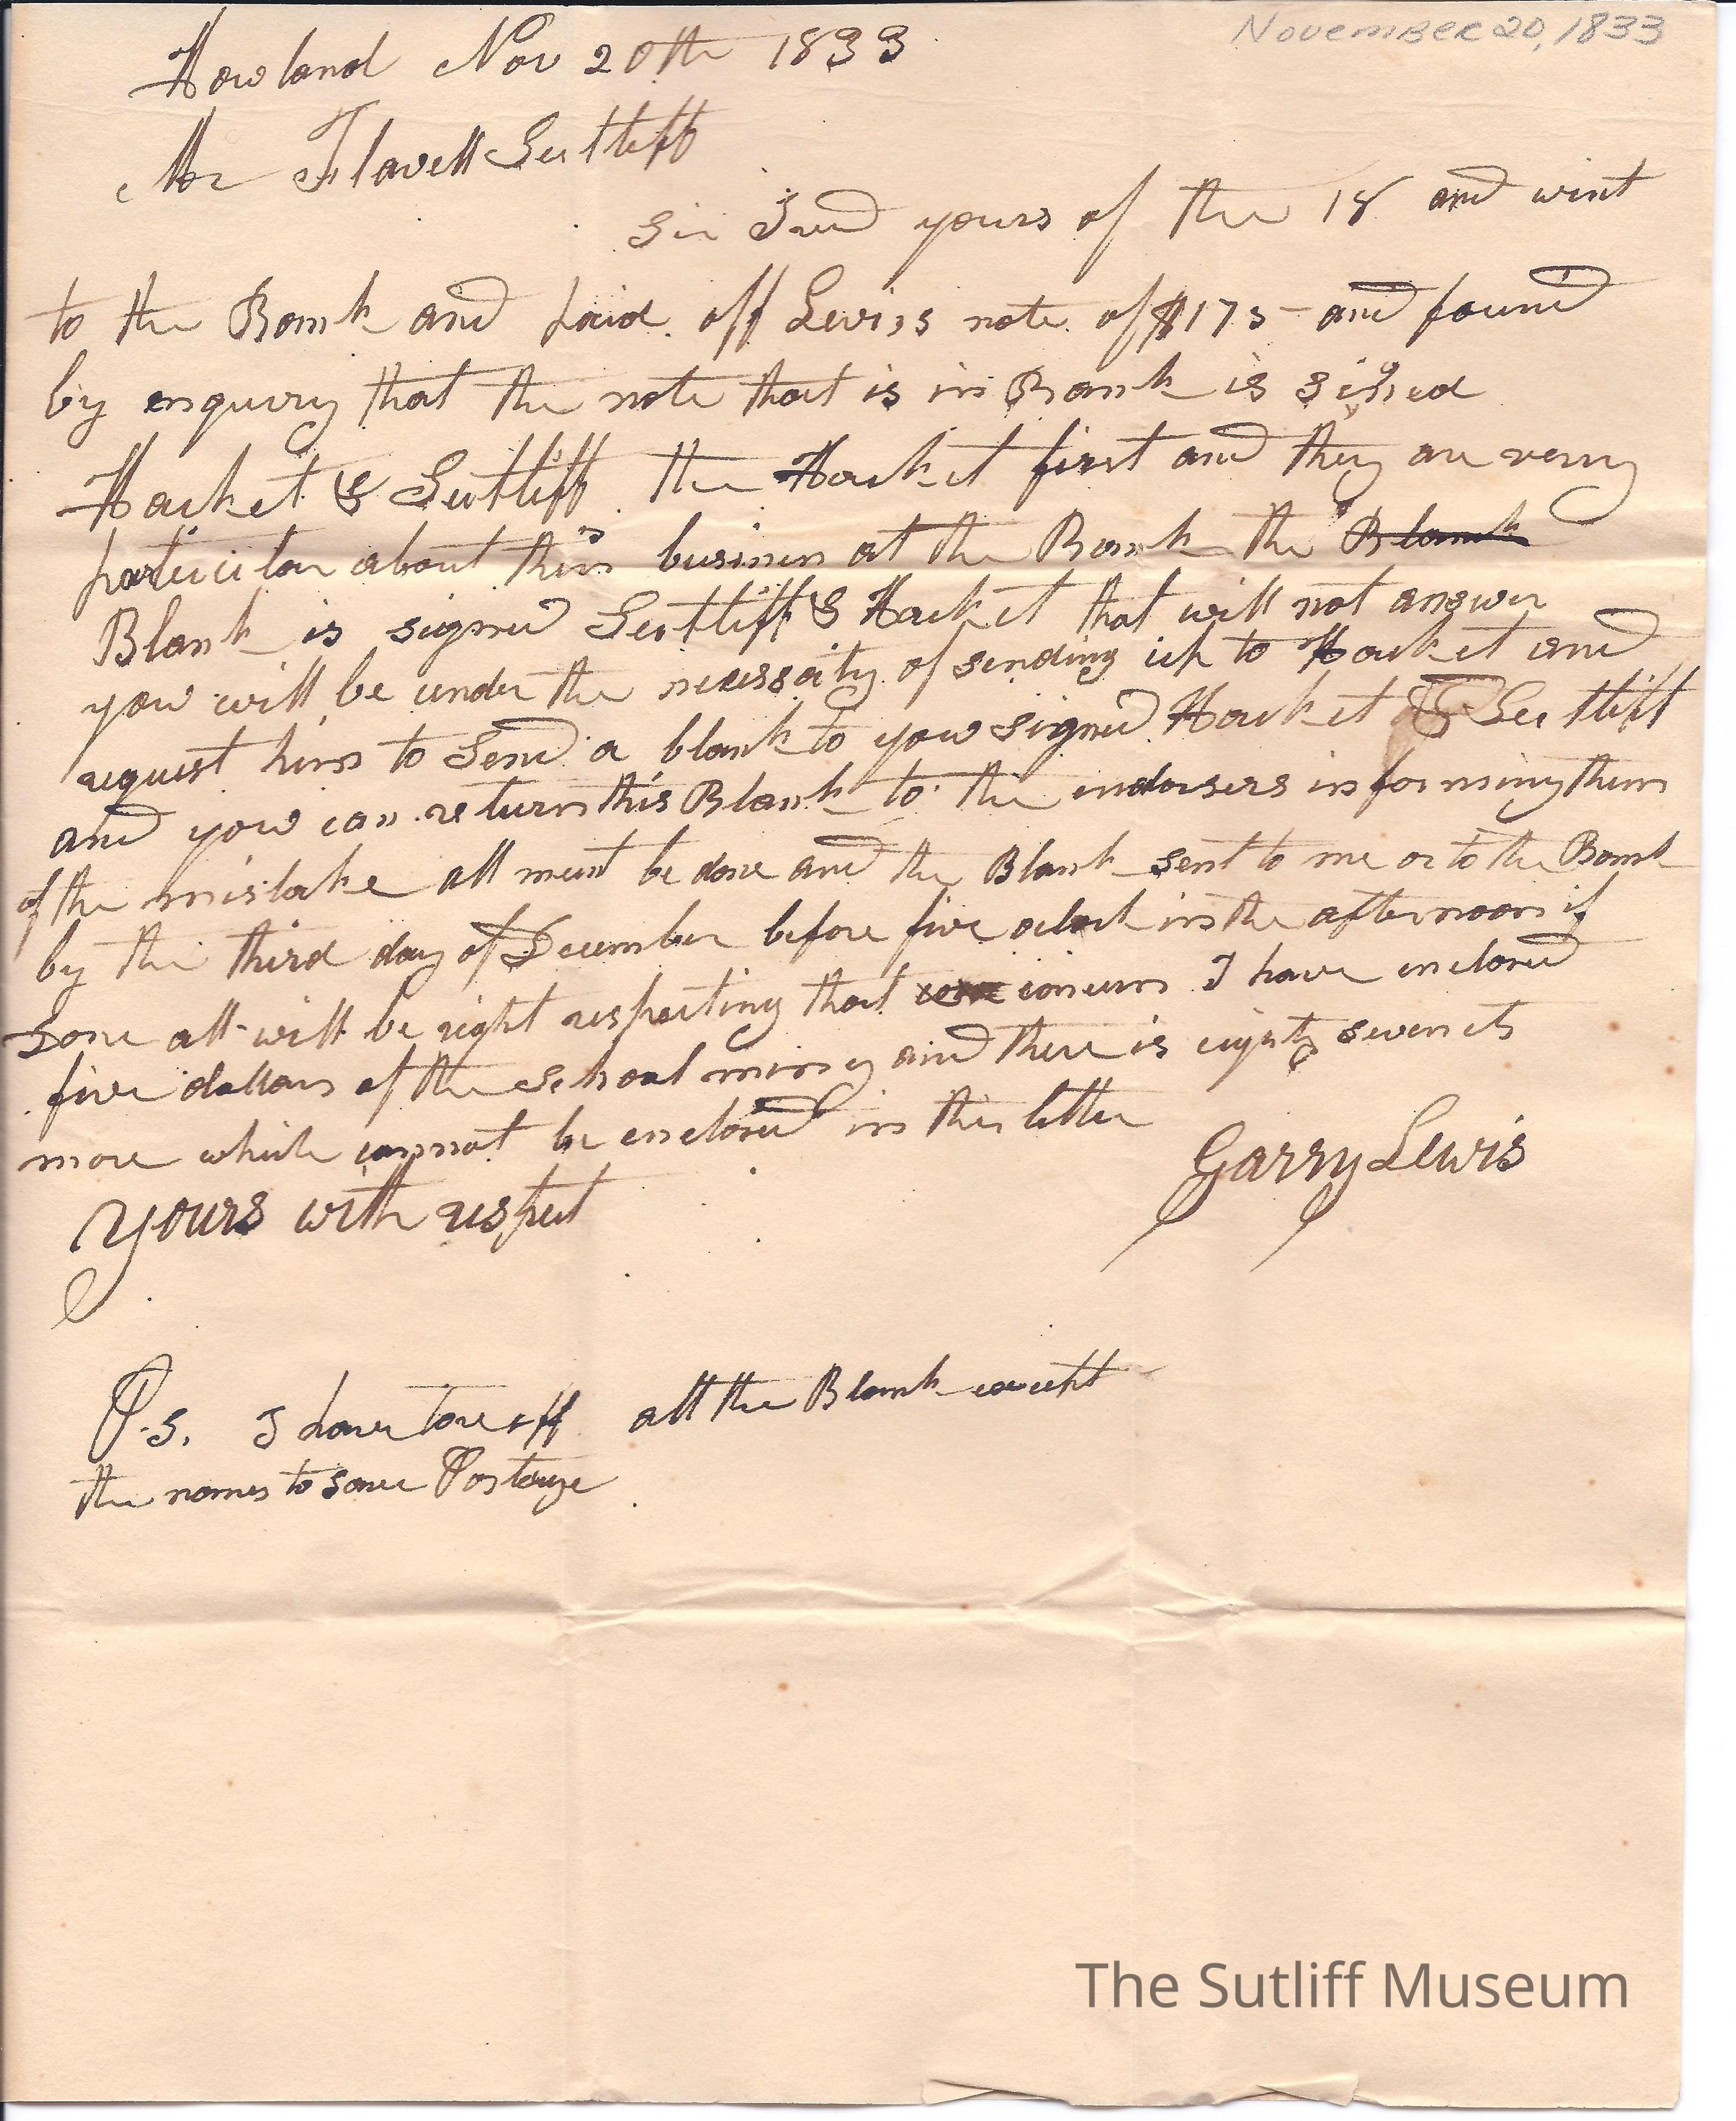 November 20, 1833
Howland Nov 20th 1833
Mr Flavell Sutliff
Sir I recd yours of the 18 and wint
to the Bank and paid off Leviss note of $175 - and found
by enquiry that the note that is in Bank is signed
Hacket & Sutliff the Hacket first and they are verry
particular about their business at the Bank the Blank
Blank is signed Sutliff & Hacket that will not answer
yow will be under the necessaity of sending up to Hacket and
request him to Send a blank to yow signed Hacket & Sutliff
and yow can return this Blank to the endorsers informing them
of the mistake all must be done and the Blank sent to me or to the Bank
by the third day of December before five oclock in the afternoon if
Done all will be right respecting that concern I have enclosed
five dollars of the School money and there is eighty seven cts
more which cannot be enclosed in this letter
Garry Lewis
Yours with respect
P.S. I have tore off all the Blank except
the names to save Postage
The Sutliff Museum